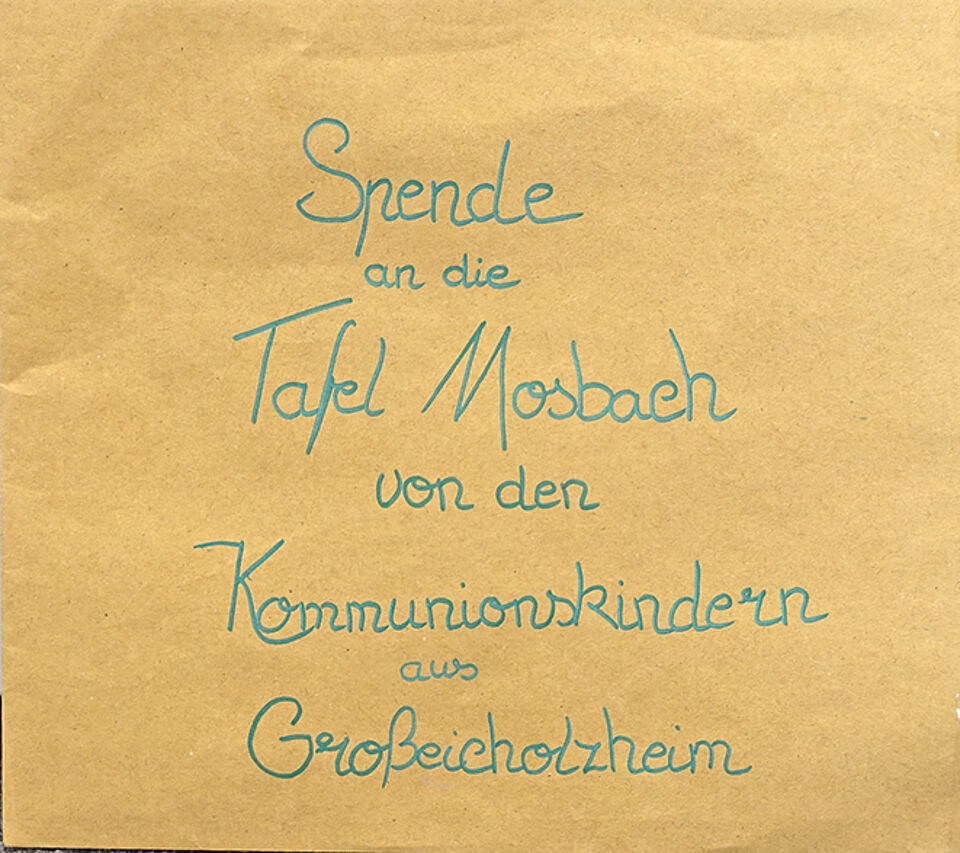 Spende
an die
Tafel Mosbach
von den
Kommunionskindern
aus
Großeicholzheim